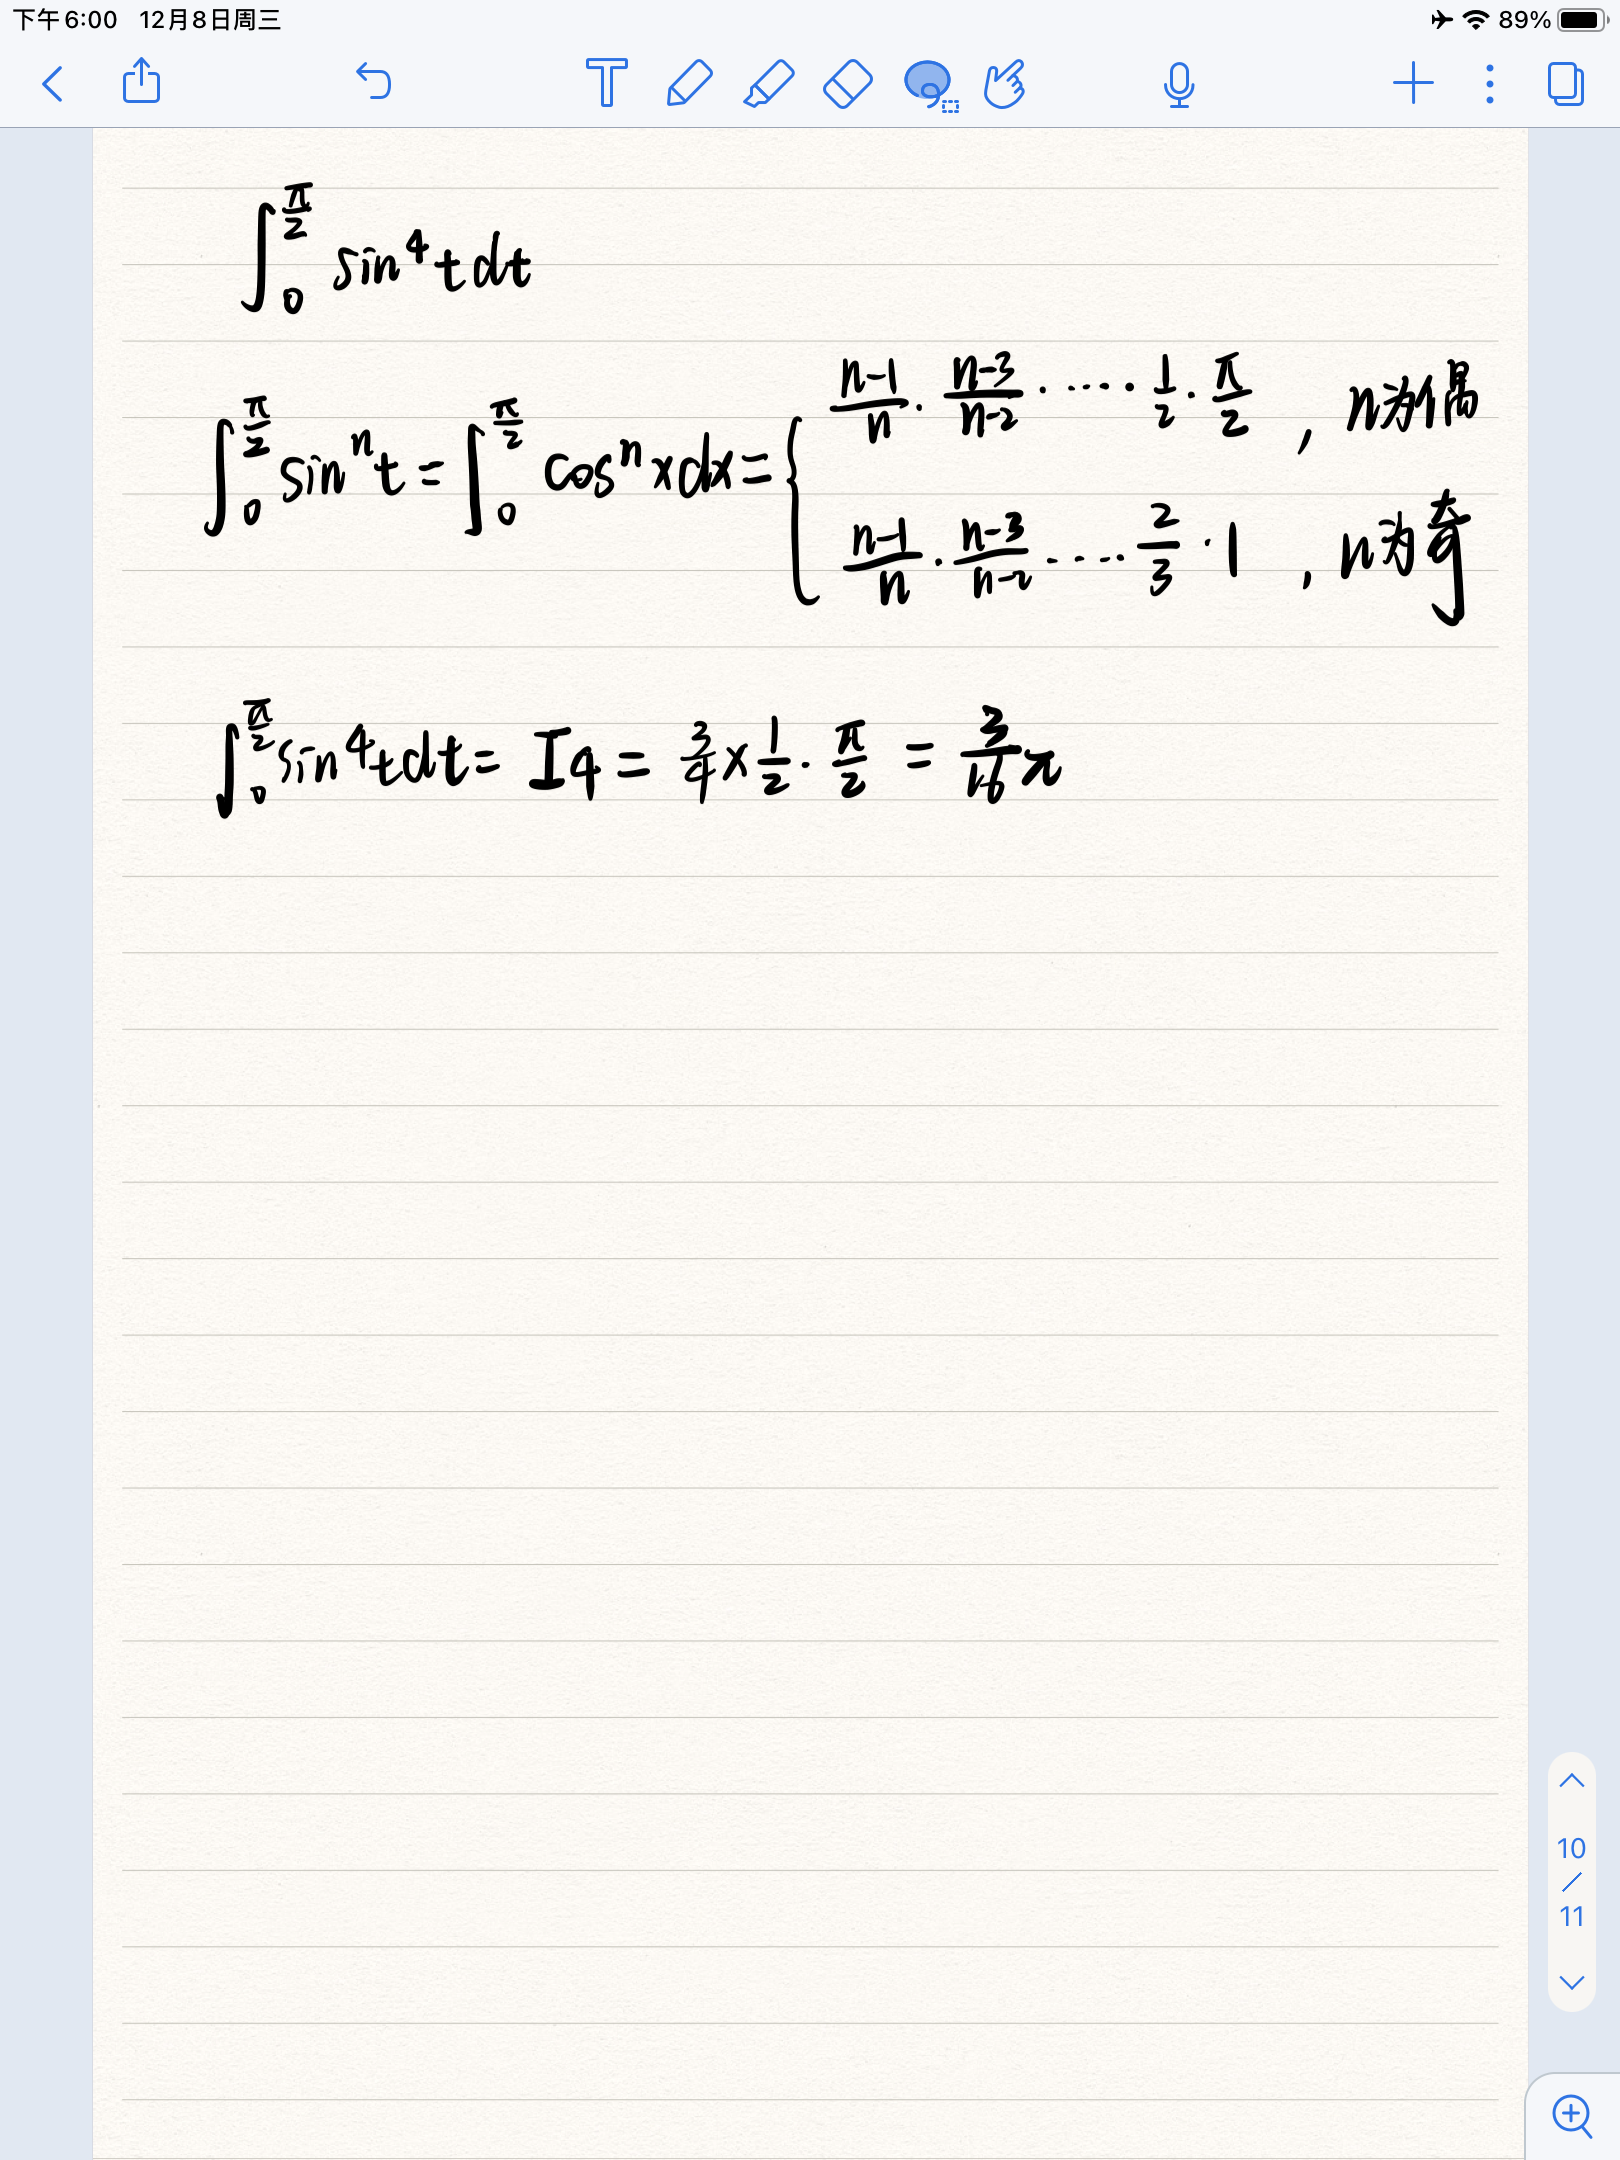 下午6:00 12月8日周三 89%
∫₀^(π/2) sin⁴t dt
∫₀^(π/2) sinⁿt = ∫₀^(π/2) cosⁿx dx = { (n-1)/n · (n-3)/(n-2) · ····· 1/2 · π/2 , n为偶
(n-1)/n · (n-3)/(n-2) ····· 2/3 · 1 , n为奇
∫₀^(π/2) sin⁴t dt = I₄ = 3/4 × 1/2 · π/2 = 3/16 π
10
/
11